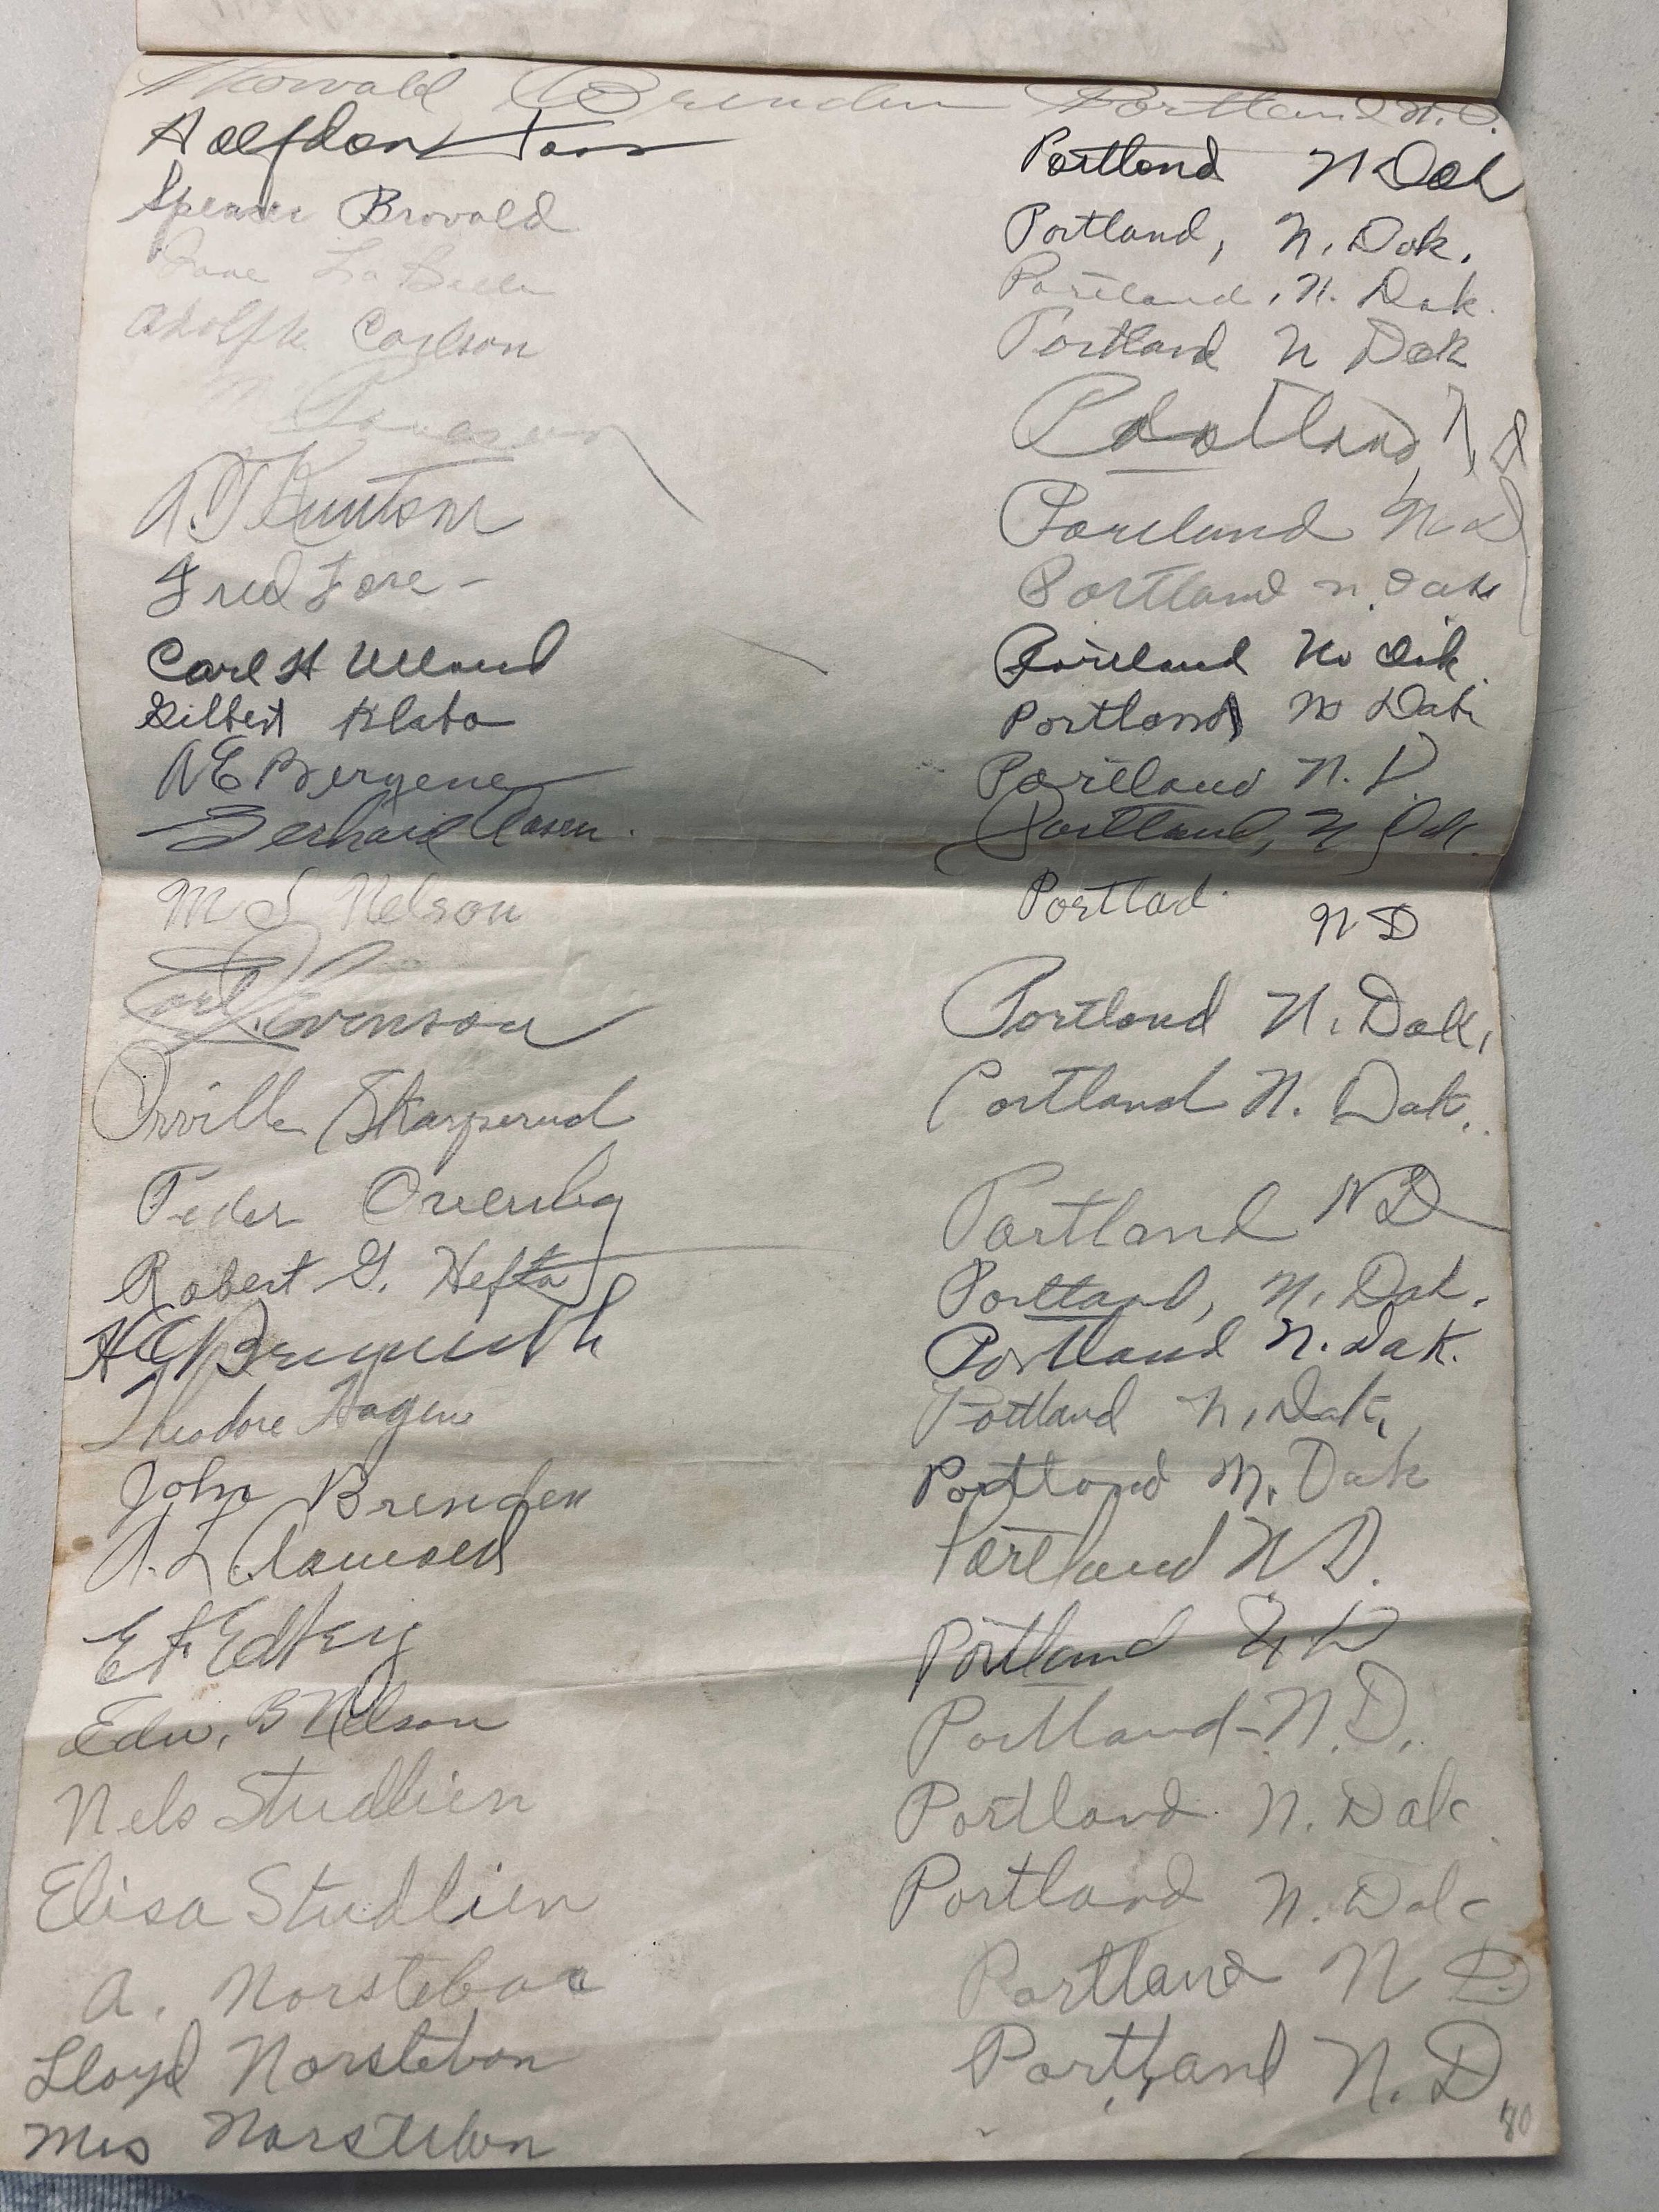 Thorvald Brenden Portland N.D.
Halfdon Portland N Dak
Spencer Brovald Portland, N. Dak.
La Belle Portland, N. Dak.
Adolph Carlson Portland N Dak
Portland, N D
A. T. Portland N D
Fred Fore - Portland n. Dak
Carl H Ulland Portland No Dak.
Gilbert Klabo Portland No Dak
A E Bergene Portland N. D.
Gerhard Aasen. Portland, N Dak.
M S Nelson Portlad N D
Carl Evenson Portland N. Dak.
Orville Skarperud Portland N. Dak.
Peder Overby Portland N D
Robert G. Hefta Portland, N. Dak.
Portland N. Dak.
Theodore Hagen Portland N. Dak.
John Brenden Portland N. Dak
A. L. Portland N D.
Portland N D
Edw. B Nelson Portland - N. D.
Nels Studlien Portland N. Dak
Elisa Studlien Portland N. Dak
A. Norstebon Portland N D
Lloyd Norstebon Portland N. D
Mrs Norstebon
80